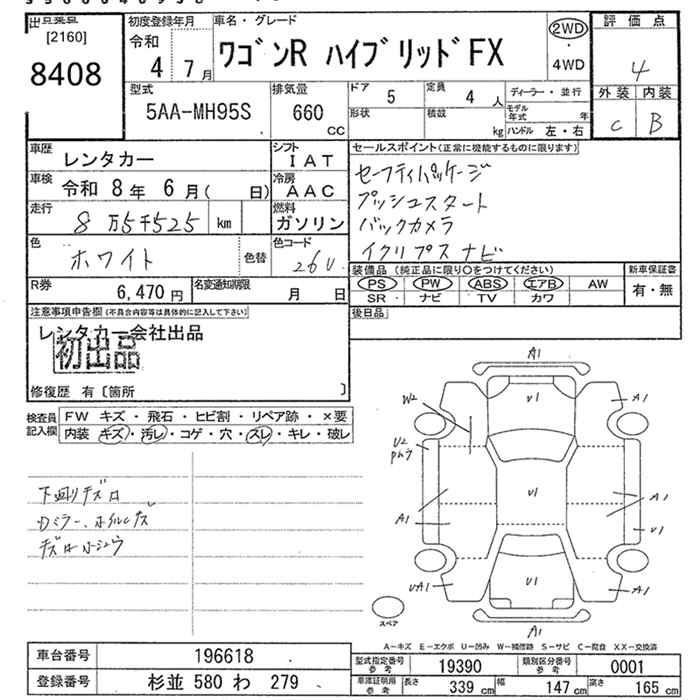 [2160]
8408
初度登録年月
令和
4 7月
車名・グレード
ワゴンR ハイブリッドFX
2WD
・
4WD
評価点
4
外装 内装
C B
型式
5AA-MH95S
排気量
660
CC
ドア 5
定員 4 人
形状
積載 kg
ディーラー・並行
モデル年式 年
ハンドル 左・右
車歴
レンタカー
シフト
IAT
車検 令和 8年 6月( 日)
冷房
AAC
走行 8万5千525 km
燃料
ガソリン
色
ホワイト
色替
色コード
26U
R券
6,470 円
名変通知期限
月 日
セールスポイント(正常に機能するものに限ります)
セーフティパッケージ
プッシュスタート
バックカメラ
イクリプスナビ
装備品 (純正品に限り○をつけてください)
PS PW ABS エアB AW
SR ナビ TV カワ
新車保証書
有・無
後日品
注意事項申告欄 (不具合内容等は具体的に記入して下さい)
レンタカー会社出品
初出品
修復歴 有〔箇所 〕
検査員記入欄
FW キズ・飛石・ヒビ割・リペア跡・×要
内装 キズ・汚レ・コゲ・穴・スレ・キレ・破レ
下廻りキズロ
ホイルキズ
A1
U1
W2
A1
U2
U1
A1
A1
U1
UA1
U1
A1
A1
スペア
A-キズ E-エクボ U-凹み W-補修跡 S-サビ C-腐食 XX-交換済
車台番号 196618
登録番号 杉並 580 わ 279
型式指定番号 参考 19390
類別区分番号 参考 0001
車庫証明用 参考 長さ 339 cm 幅 147 cm 高さ 165 cm